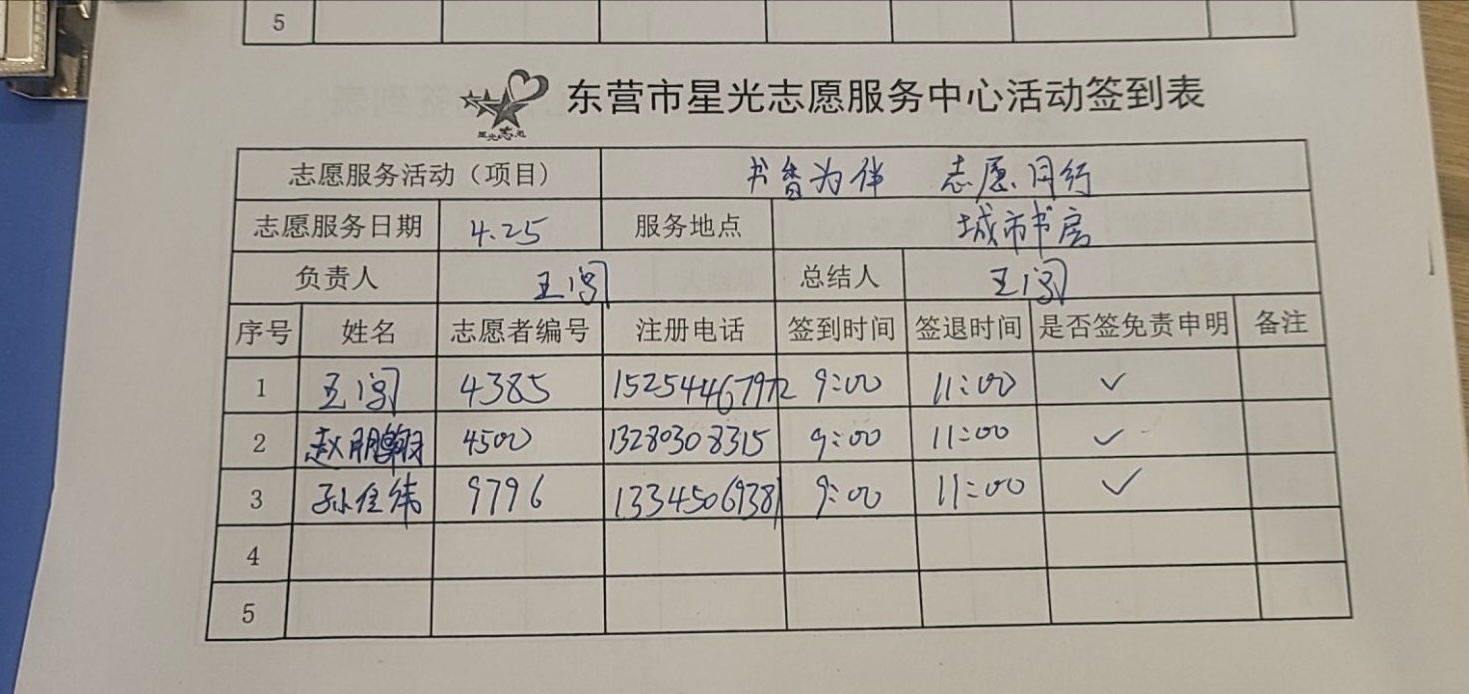 5
星光志愿
东营市星光志愿服务中心活动签到表
志愿服务活动（项目） 书香为伴 志愿同行
志愿服务日期 4.25 服务地点 城市书房
负责人 王闯 总结人 王闯
序号 姓名 志愿者编号 注册电话 签到时间 签退时间 是否签免责申明 备注
1 王闯 4385 15254467972 9:00 11:00 ✓
2 赵鹏翔 4500 13280308315 9:00 11:00 ✓
3 孙佳纬 9796 13345069381 9:00 11:00 ✓
4
5